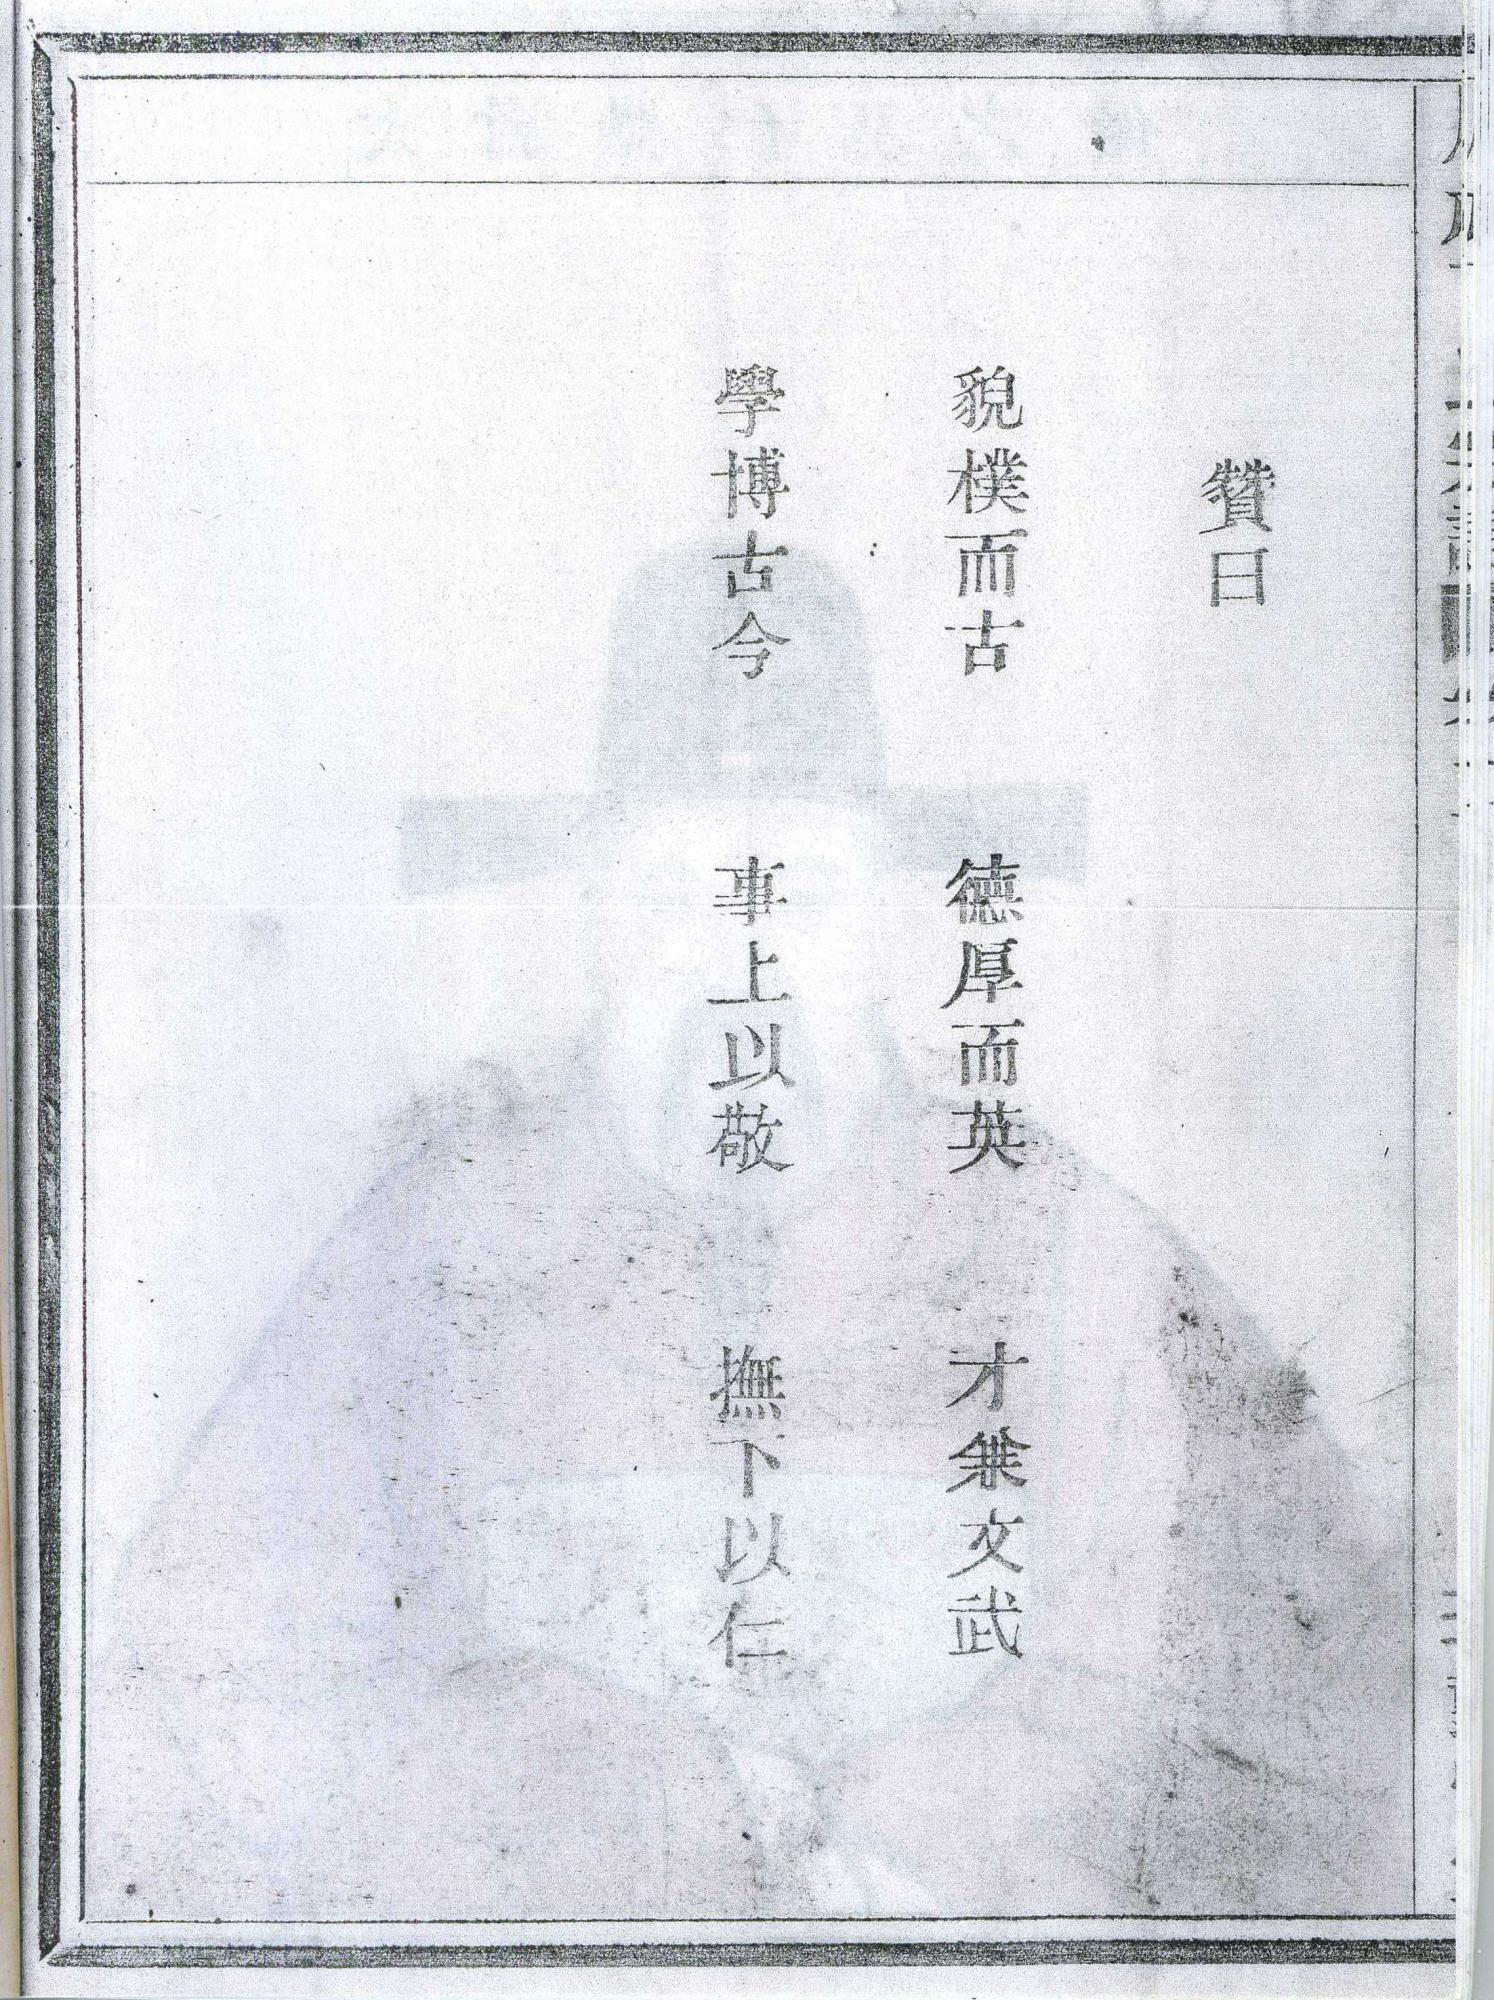 贊曰
貌樸而古 德厚而英 才兼文武
學博古今 事上以敬 撫下以仁